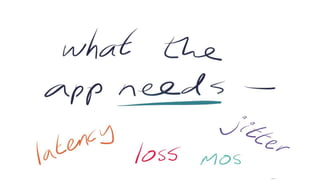 what the
app needs —
latency
loss
MOS
jitter